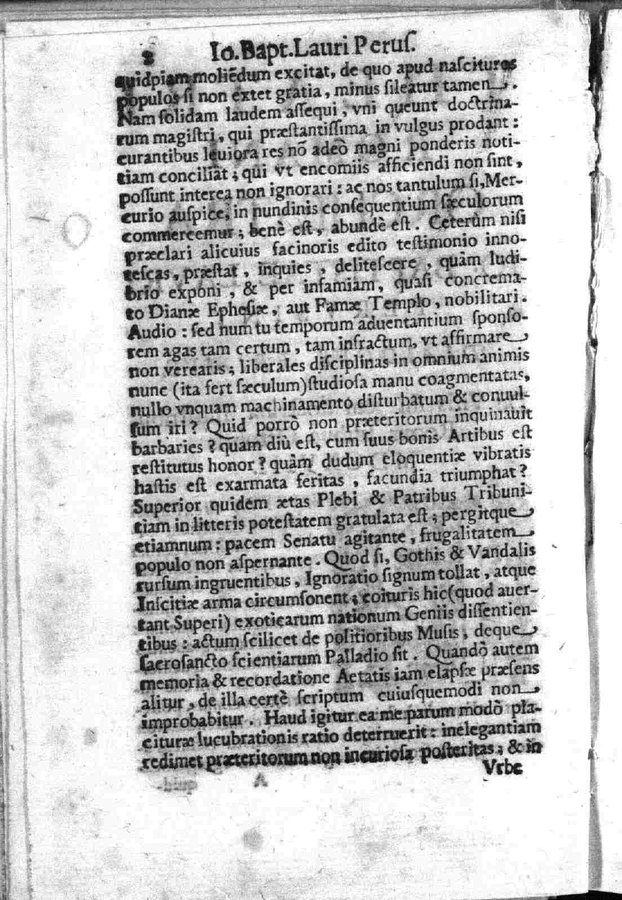 8 Io. Bapt. Lauri Perus.
quidpiam moliẽdum excitat, de quo apud nascituros
populos si non extet gratia, minus sileatur tamen.
Nam solidam laudem assequi, vni queunt doctrina-
rum magistri, qui præstantissima in vulgus prodant:
curantibus leuiora res nõ adeò magni ponderis noti-
tiam conciliat; qui vt encomiis afficiendi non sint,
possunt interea non ignorari: ac nos tantulum si, Mer-
curio auspice, in nundinis consequentium sæculorum
commercemur; benè est, abundè est. Ceterùm nisi
præclari alicuius facinoris edito testimonio inno-
tescas, præstat, inquies, delitescere, quàm ludi-
brio exponi, & per infamiam, quasi concrema-
to Dianæ Ephesiæ, aut Famæ Templo, nobilitari.
Audio: sed num tu temporum aduentantium sponso-
rem agas tam certum, tam infractum, vt affirmare
non verearis; liberales disciplinas in omnium animis
nunc (ita fert sæculum) studiosa manu coagmentatas,
nullo vnquam machinamento disturbatum & conuul-
sum iri? Quid porrò non præteritorum inquinauit
barbaries? quam diù est, cum suus bonis Artibus est
restitutus honor? quàm dudum eloquentiæ vibratis
hastis est exarmata feritas, facundia triumphat?
Superior quidem ætas Plebi & Patribus Tribuni-
tiam in litteris potestatem gratulata est; pergitque
etiamnum: pacem Senatu agitante, frugalitatem
populo non aspernante. Quod si, Gothis & Vandalis
rursum ingruentibus, Ignoratio signum tollat, atque
Inscitiæ arma circumsonent; coituris hic (quod auer-
tant Superi) exoticarum nationum Geniis dissentien-
tibus: actum scilicet de politioribus Musis, deque
sacrosancto scientiarum Palladio sit. Quandò autem
memoria & recordatione Aetatis iam elapsæ præsens
alitur, de illa certè scriptum cuiusquemodi non
improbabitur. Haud igitur ea me parum modò pla-
cituræ lucubrationis ratio deterruerit: inelegantiam
redimet præteritorum non incuriosa posteritas; & in
Vrbe
A